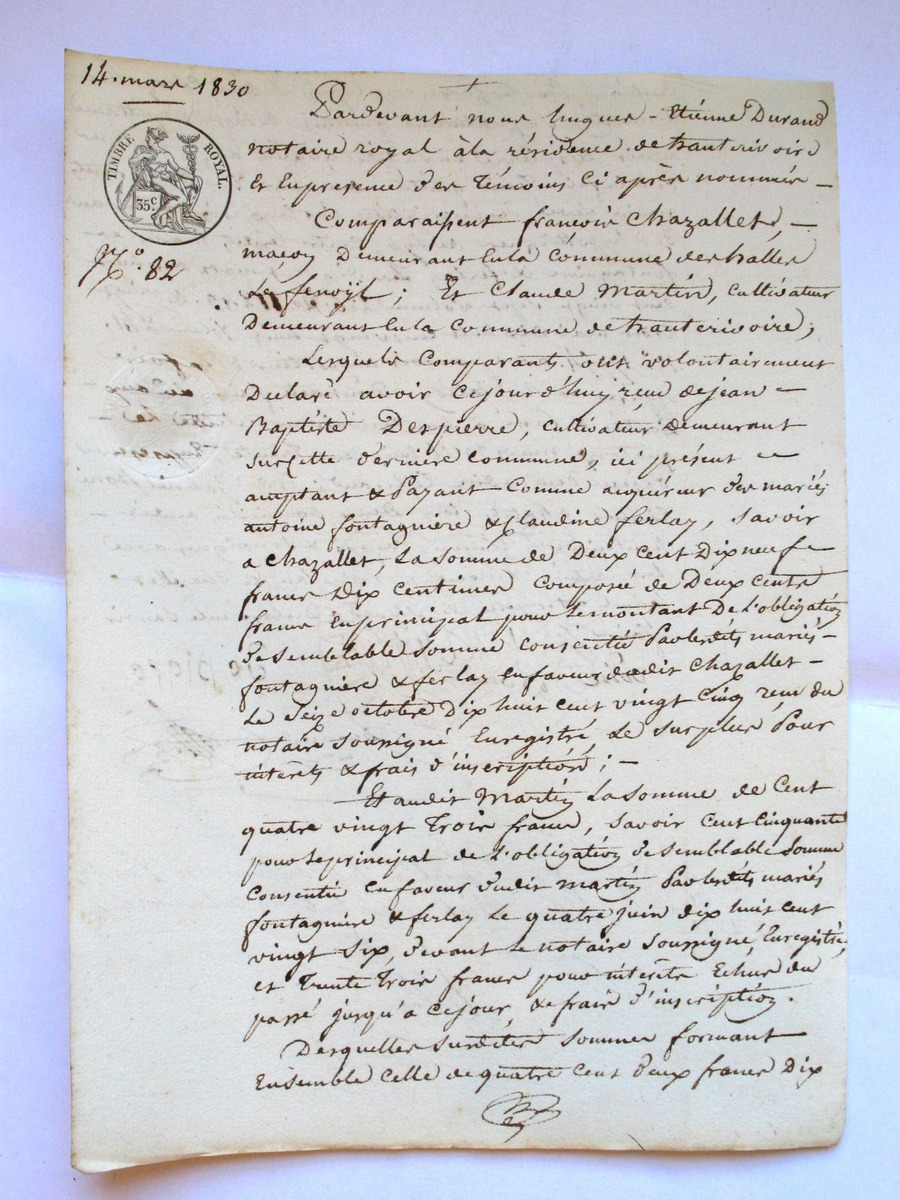 14. mars 1830
TIMBRE ROYAL.
35.c
N.o 82
Pardevant nous hugues-Etiénne Durand
notaire royal à la résidence de hauterivoire
Et En présence des Témoins Ci après nommés
Comparaissent françois Chazallet,
maçon Demeurant En la Commune des halles
Le fenoÿl; Et Claude Martin, cultivateur
Demeurant En la Commune de hauterivoire;
Lesquels Comparants ont volontairement
Declaré avoir Cejourd'huy reçu de jean
Baptiste Despierre, cultivateur Demeurant
sur Cette dernière Commune, ici présent
acceptant & Payant Comme acquéreur des mariés
antoine fontagnière & Claudine ferlay, savoir
a Chazallet, La somme de Deux Cent Dixneuf
francs Dix Centimes Composée de Deux Cents
francs En principal pour le montant De L'obligation
de semblable somme consentie Par lesdits mariés
fontagnière & ferlay En faveur dudit Chazallet
Le Seize octobre Dix huit cent vingt Cinq reçu du
notaire soussigné Enregistré, Le surplus Pour
intérêts & frais d'inscription;
Et audit Martin La Somme de Cent
quatre vingt Trois francs, savoir Cent Cinquante
pour le principal de L'obligation de semblable Somme
Consentie En faveur dudit martin Par lesdits mariés
fontagnière & ferlay Le quatre juin dix huit cent
vingt Six, devant le notaire Soussigné, Enregistré,
et Trente Trois francs pour intérêts Echus du
passé jusqu'a Cejour, & frais d'inscription.
Desquelles susdites sommes formant
Ensemble Celle de quatre Cent Deux francs Dix